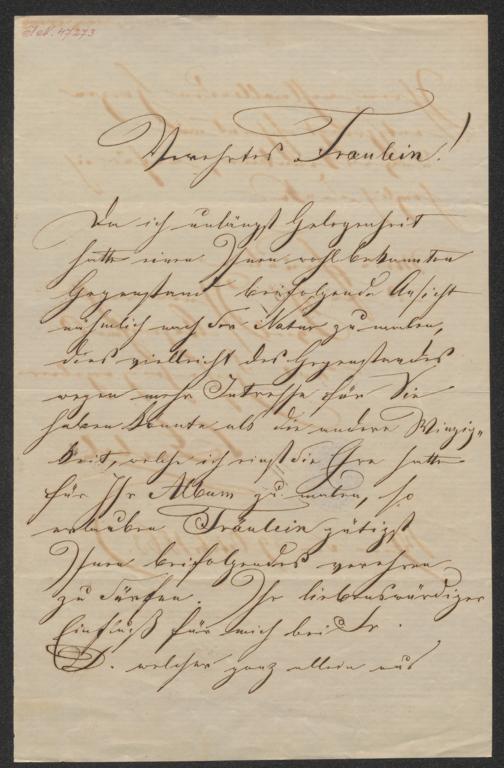 I.N. 47273
Verehrtes Fräulein!
Da ich unlängst Gelegenheit
hatte einen Ihnen wohl bekannten
Gegenstand beifolgende Ansicht
nähmlich nach der Natur zu malen,
dies vielleicht des Gegenstandes
wegen mehr Intresse für Sie
haben konnte als die andere Winzig„
keit, welche ich einst die Ehre hatte
für Ihr Album zu malen, so
erlauben Fräulein gütigst
Ihnen beifolgendes verehren
zu dürfen. Ihr liebenswürdiger
Einfluß für mich bei
D. welcher ganz allein aus